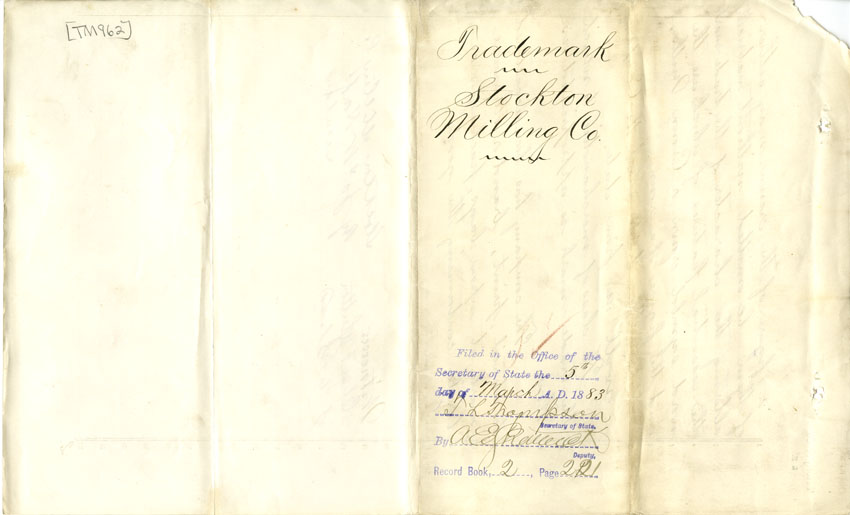 [TM962]
Trademark
Stockton
Milling Co.
Filed in the Office of the
Secretary of State the 5th
day of March A. D. 1883
Thompson
Secretary of State.
By
Deputy.
Record Book, 2, Page 221